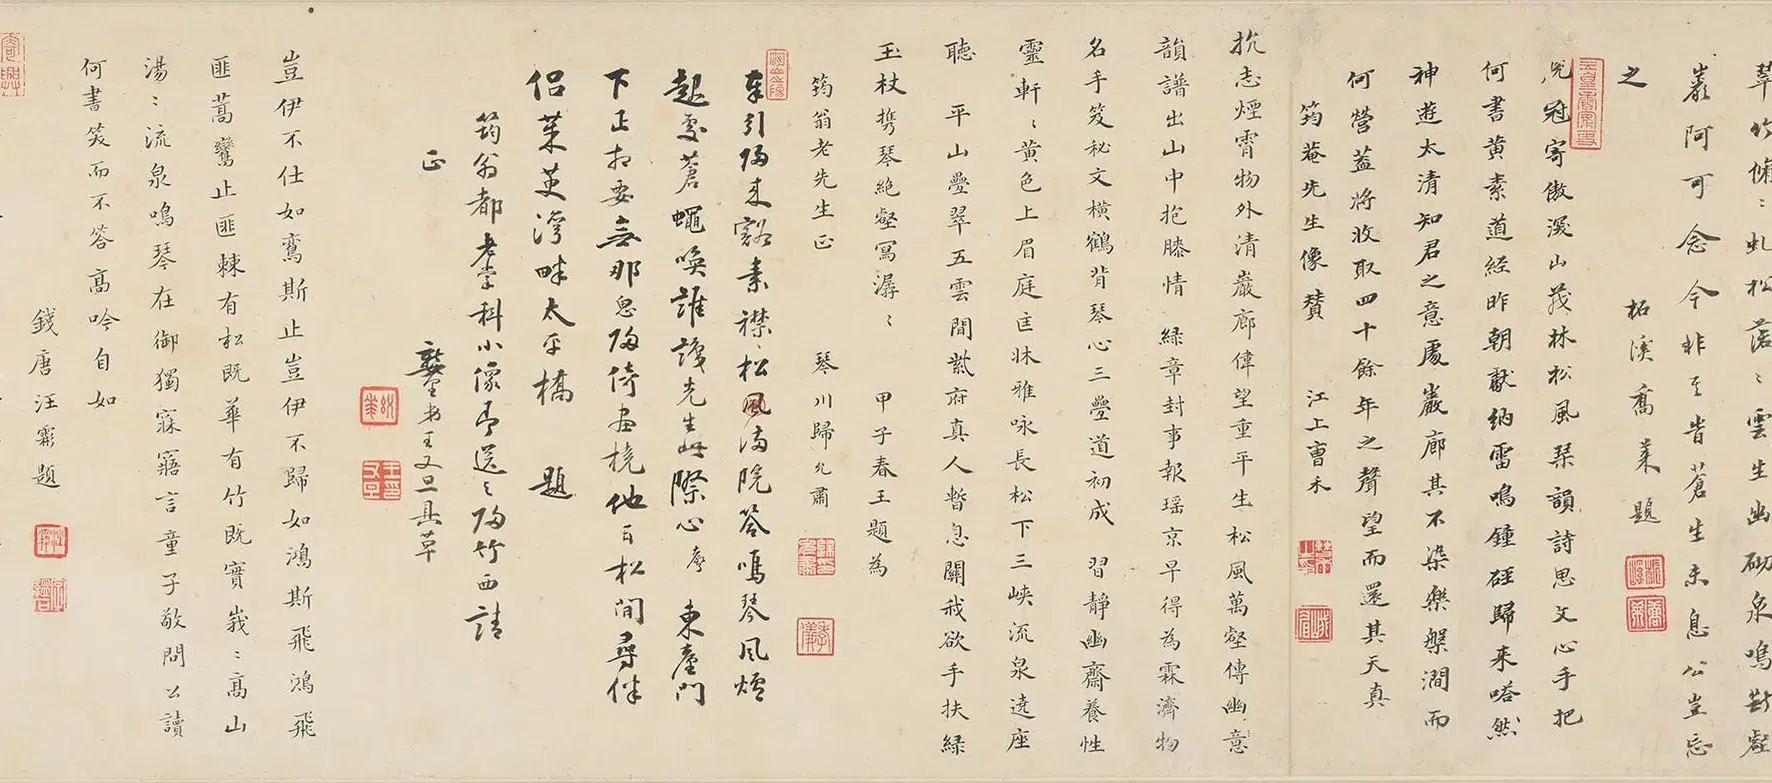 翠竹翛〻虬松落〻雲生幽砌泉鳴斷壑
巖阿可念今非昔蒼生未息公豈忘
之
柘溪喬萊題
冠寄傲溪山茂林松風琴韻詩思文心手把
何書黄素道經昨朝獻納雷鳴鐘歸来嗒然
神遊太清知君之意處巖廊其不染樂槃澗而
何營蓋將收取四十餘年之聲望而還其天真
筠菴先生像贊
江上曹禾
抗志煙霄物外清巖廊偉望重平生松風萬壑傳幽意
韻譜出山中抱膝情 緑章封事報瑶京早得為霖濟物
名手笈秘文横鶴背琴心三疊道初成 習靜幽齋養性
靈軒〻黄色上眉庭匡牀雅咏長松下三峽流泉遶座
聽 平山疊翠五雲間紫府真人暫息關我欲手扶緑
玉杖携琴絶壑冩潺〻 甲子春王題為
筠翁老先生正
琴川歸允肅
引歸来豁素襟〻松風滿院答鳴琴風爐
起處蒼蠅喚誰護先生此際心 東臺門
下正相要無那思歸倚畫橈他日松間尋伴
侣茱萸灣畔太平橋 題
筠翁都老掌科小像即送之歸竹西請
正
年弟王又旦具草
豈伊不仕如鸞斯止豈伊不歸如鴻斯飛鴻飛
匪蒿鸞止匪棘有松既華有竹既實峩〻高山
湯〻流泉鳴琴在御獨寐寤言童子敬問公讀
何書笑而不答高吟自如
錢唐汪霦題